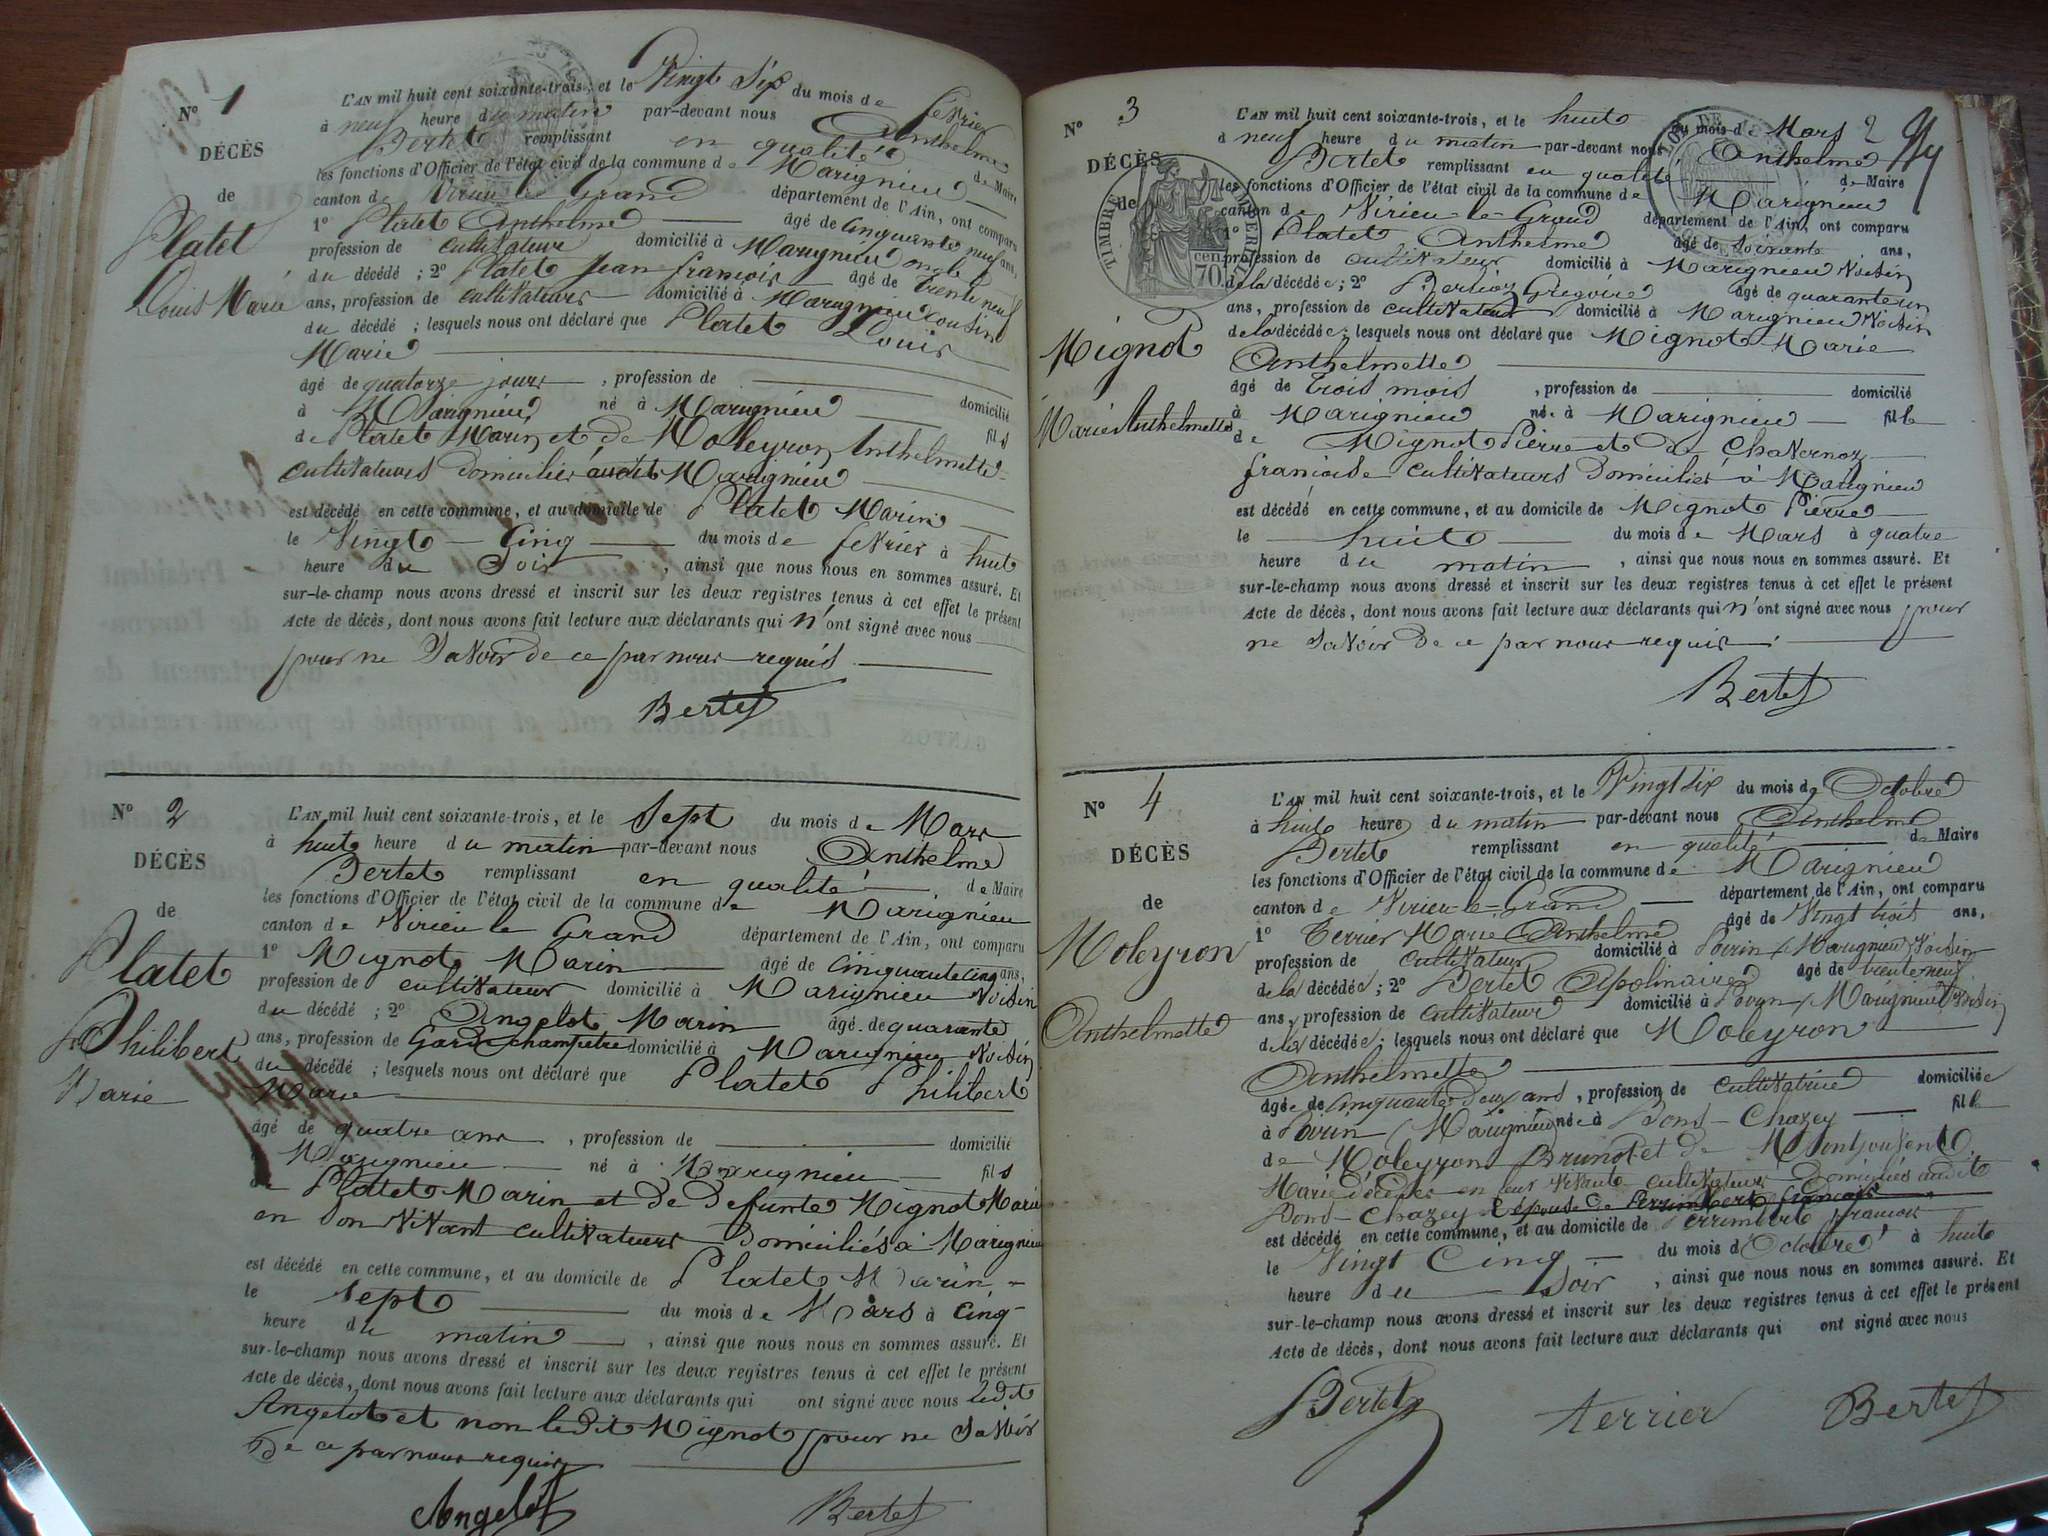 N° 1
DÉCÈS
de
Platet
Louis Marie
L'AN mil huit cent soixante-trois, et le Vingt Six du mois de février
à neuf heure du matin par-devant nous Anthelme
Bertet remplissant en qualité de Maire
les fonctions d'Officier de l'état civil de la commune de Marignieu
canton de Virieu le Grand département de l'Ain, ont comparu
1° Platet Anthelme âgé de cinquante neuf ans,
profession de cultivateur domicilié à Marignieu oncle
du décédé ; 2° Platet Jean françois âgé de trente neuf
ans, profession de cultivateur domicilié à Marignieu cousin
du décédé ; lesquels nous ont déclaré que Platet Louis
Marie
âgé de quatorze jours , profession de domicilié
à Marignieu né à Marignieu fils
de Platet Marin et de Moleyron Anthelmette
cultivateurs domiciliés audit Marignieu
est décédé en cette commune, et au domicile de Platet Marin
le Vingt - Cinq du mois de fevrier à huit
heure du Soir , ainsi que nous nous en sommes assuré. Et
sur-le-champ nous avons dressé et inscrit sur les deux registres tenus à cet effet le présent
Acte de décès, dont nous avons fait lecture aux déclarants qui n'ont signé avec nous
pour ne Savoir de ce par nous requis
Bertet
N° 2
DÉCÈS
de
Platet
Philibert
Marie
L'AN mil huit cent soixante-trois, et le Sept du mois de Mars
à huit heure du matin par-devant nous Anthelme
Bertet remplissant en qualité de Maire
les fonctions d'Officier de l'état civil de la commune de Marignieu
canton de Virieu le Grand département de l'Ain, ont comparu
1° Mignot Marin âgé de cinquante cinq ans,
profession de cultivateur domicilié à Marignieu Voisin
du décédé ; 2° Angelot Marin âgé de quarante
ans, profession de Garde champetre domicilié à Marignieu Voisin
du décédé ; lesquels nous ont déclaré que Platet Philibert
Marie
âgé de quatre ans , profession de domicilié
Marignieu né à Marignieu fils
de Platet Marin et de Defunte Mignot Marie
en Son Vivant cultivateurs Domiciliés à Marignieu
est décédé en cette commune, et au domicile de Platet Marin
le Sept du mois de Mars à Cinq
heure du matin , ainsi que nous nous en sommes assuré. Et
sur-le-champ nous avons dressé et inscrit sur les deux registres tenus à cet effet le présent
Acte de décès, dont nous avons fait lecture aux déclarants qui ont signé avec nous ledit
Angelot et non ledit Mignot pour ne Savoir
De ce par nous requis
Angelot Bertet
N° 3
DÉCÈS
de
TIMBRE IMPERIAL
70 cen
Mignot
Marie Anthelmette
L'AN mil huit cent soixante-trois, et le huit du mois de Mars 2
à neuf heure du matin par-devant nous Anthelme
Bertet remplissant en qualité de Maire
les fonctions d'Officier de l'état civil de la commune de Marignieu
canton de Virieu-le-Grand département de l'Ain, ont comparu
1° Platet Anthelme âgé de soixante ans,
profession de cultivateur domicilié à Marignieu Voisin
de la décédée ; 2° Berlioz Gregoire âgé de quarante un
ans, profession de cultivateur domicilié à Marignieu Voisin
de la décédée ; lesquels nous ont déclaré que Mignot Marie
Anthelmette
âgé de trois mois , profession de domicilié
à Marignieu née à Marignieu fille
de Mignot Pierre et de Chavernoz
françoise cultivateurs Domiciliés à Marignieu
est décédé en cette commune, et au domicile de Mignot Pierre
le huit du mois de Mars à quatre
heure du matin , ainsi que nous nous en sommes assuré. Et
sur-le-champ nous avons dressé et inscrit sur les deux registres tenus à cet effet le présent
Acte de décès, dont nous avons fait lecture aux déclarants qui n'ont signé avec nous pour
ne Savoir De ce par nous requis
Bertet
N° 4
DÉCÈS
de
Moleyron
Anthelmette
L'AN mil huit cent soixante-trois, et le Vingt Six du mois de Octobre
à huit heure du matin par-devant nous Anthelme
Bertet remplissant en qualité de Maire
les fonctions d'Officier de l'état civil de la commune de Marignieu
canton de Virieu-le-Grand département de l'Ain, ont comparu
1° Terrier Marie Anthelme âgé de Vingt trois ans,
profession de cultivateur domicilié à Poirin (Marignieu) Voisin
de la décédée ; 2° Bertet Apolinaire âgé de trente neuf
ans, profession de cultivateur domicilié à Poirin (Marignieu) Voisin
de la décédée ; lesquels nous ont déclaré que Moleyron
Anthelmette
âgée de cinquante Deux ans , profession de cultivatrice domiciliée
à Poirin (Marignieu) née à Pons-Chazey fille
de Moleyron Brunot et de
Marie décédés en leur Vivant cultivateurs Domiciliés audit
Pons-Chazey Epouse De Perrimbert françois
est décédé en cette commune, et au domicile de Perrimbert françois
le Vingt Cinq du mois d'Octobre à huit
heure du Soir , ainsi que nous nous en sommes assuré. Et
sur-le-champ nous avons dressé et inscrit sur les deux registres tenus à cet effet le présent
Acte de décès, dont nous avons fait lecture aux déclarants qui ont signé avec nous
Bertet terrier Bertet